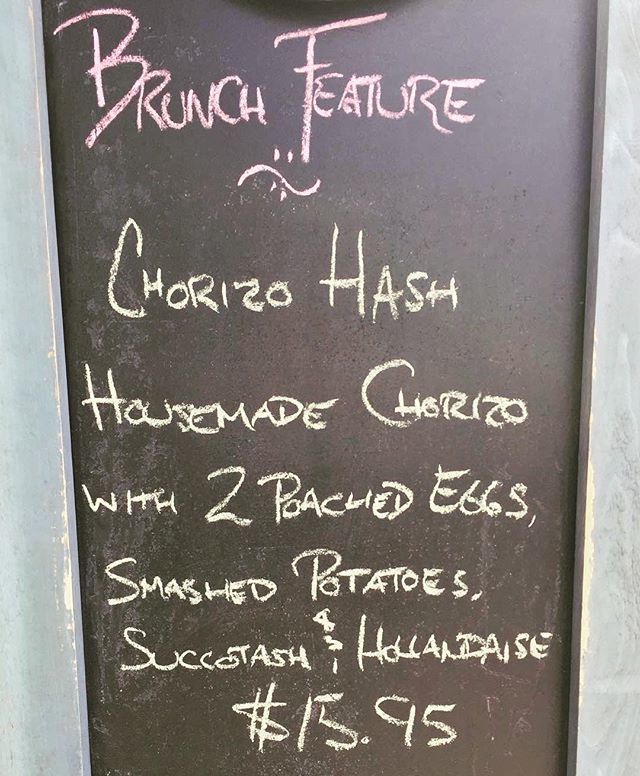 BRUNCH FEATURE
CHORIZO HASH
HOUSEMADE CHORIZO
WITH 2 POACHED EGGS,
SMASHED POTATOES,
SUCCOTASH & HOLLANDAISE
$15.95